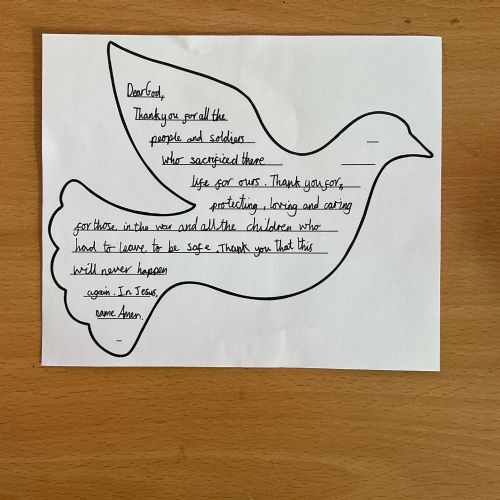 Dear God,
Thank you for all the
people and soldiers
who sacrificed there
life for ours. Thank you for,
protecting, loving and caring
for those in the war and all the children who
had to leave to be safe. Thank you that this
will never happen
again. In Jesus,
name Amen.